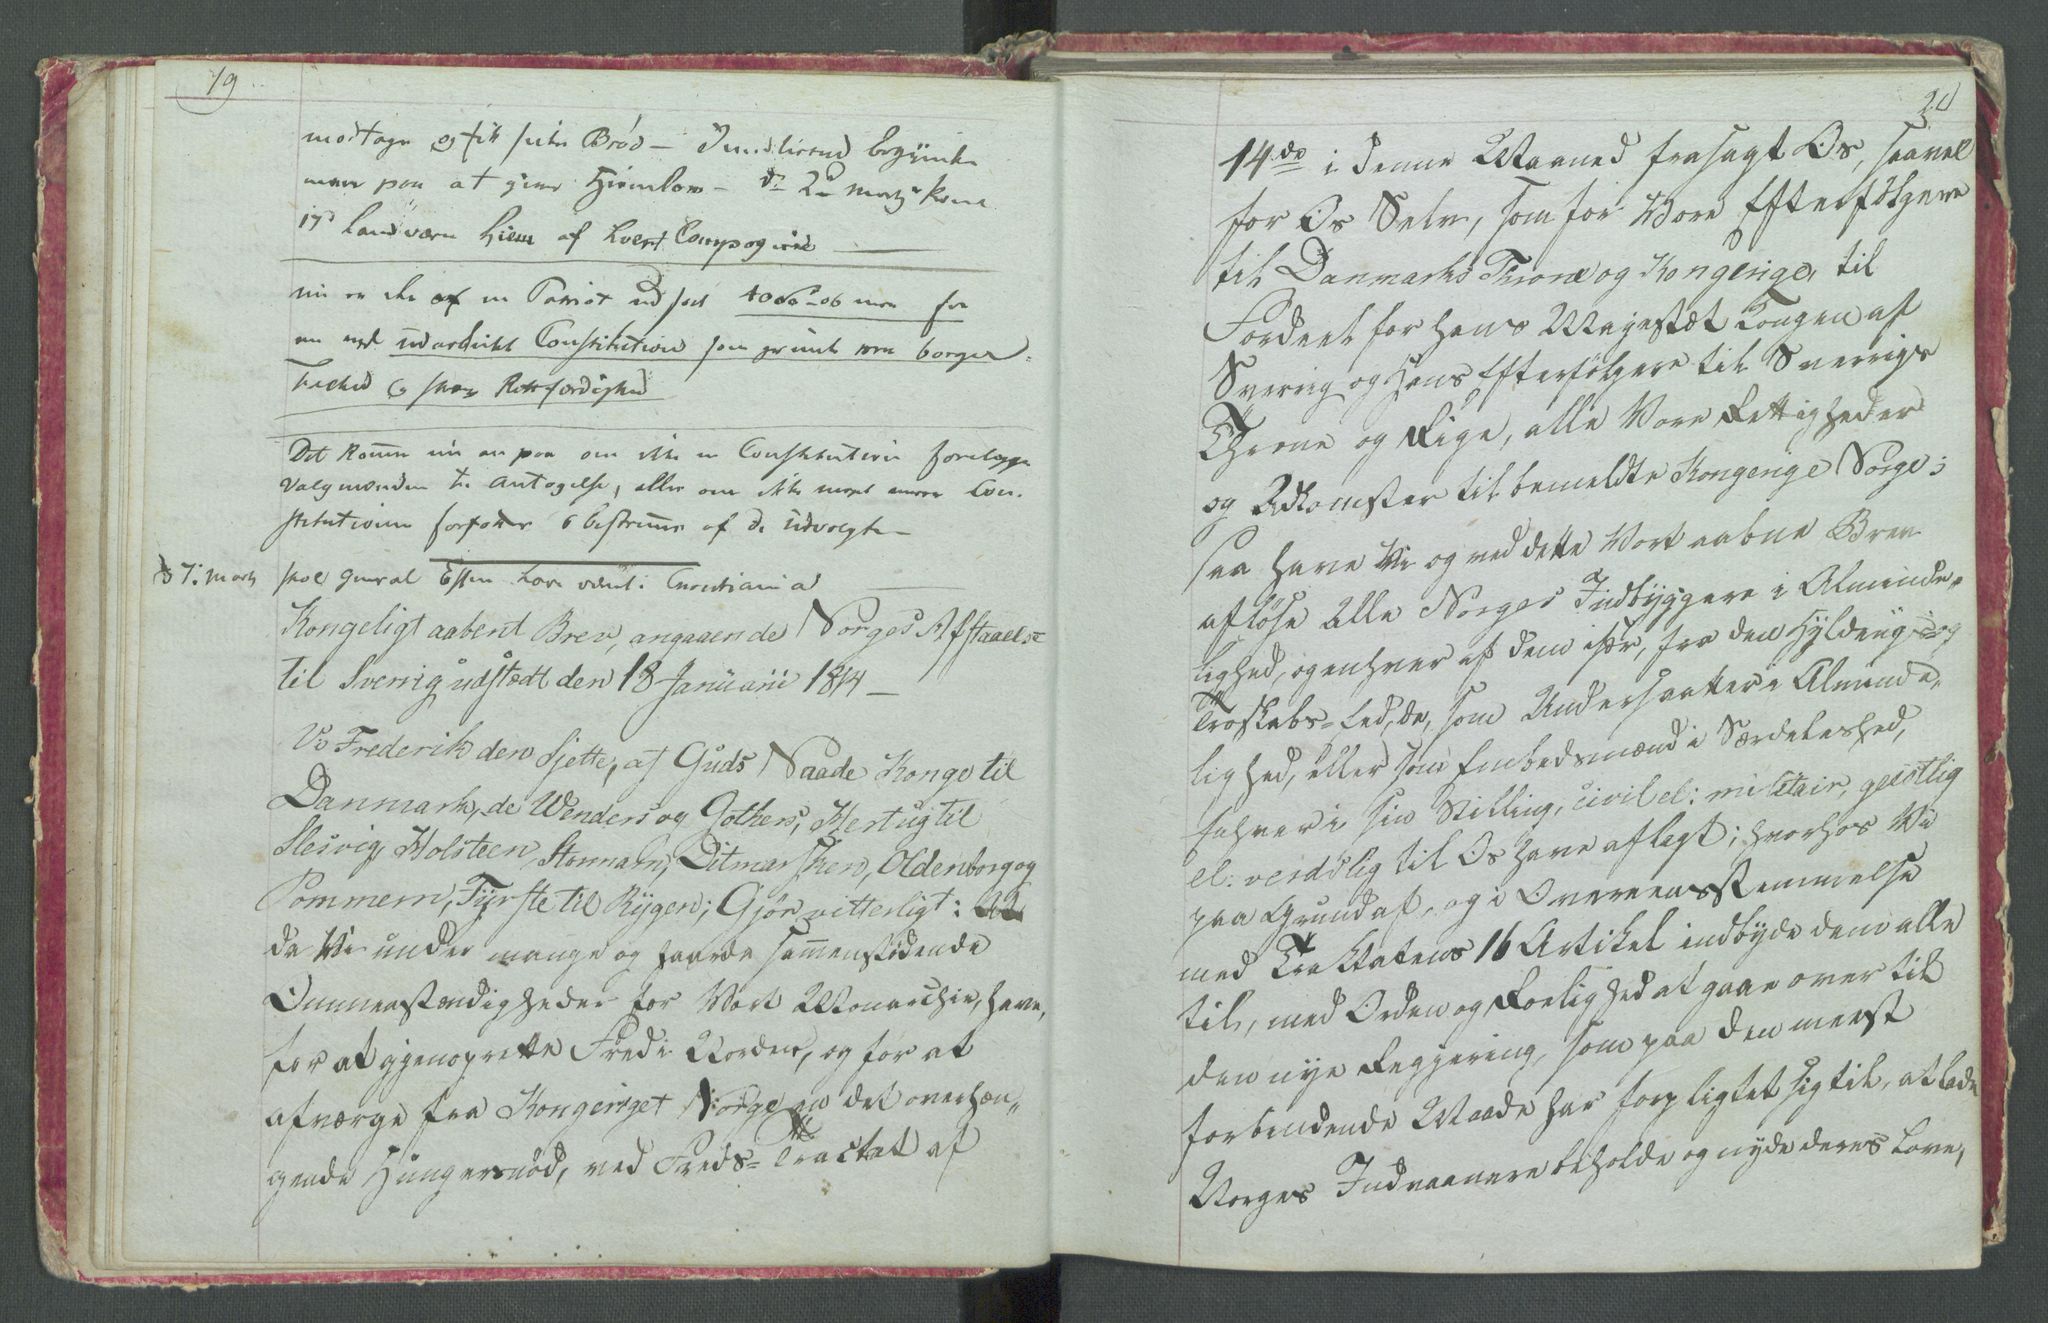 19
modtage og fik sidste Brød — Imidlertid begyndte
man paa at give Hiemlov — d. 2 Martz kom
17 Landværn hiem af hvert Compagnie —
nu er der af en Patriot udsat 1000 for
en vel udarbeidet Constitution som grunder borger-
frehed og Retfærdighed
Det kommer nu an paa om ikke en Constitution forelægges
Valgmænden til Antagelse, eller om ikke Con-
stitutionen forfattes & bestemmes af de Udvalgte —
d 7: Martz skal General Essen have været i Christiania
Kongeligt aabent Brev, angaaende Norges Afstaaelse
til Sverrig udstædt den 18 Januarii 1814 —
Vi Frederik den Sjette, af Guds Naade Konge til
Danmark, de Wenders og Gothers, Hertug til
Slesvig, Holsteen, Stormarn, Ditmarsken, Oldenborg og
Pommern, Fyrste til Rygen; Gjør vitterligt:
da Vi under mange og haarde sammenstødende
Omstændigheder for Vort Monarchie, have,
for at gjenoprette Fred i Norden, og for at
afværge fra Kongeriget Norge en det overhæn„
gende Hungersnød, ved Freds-Tractat af
20
14de i denne Maaned frasagt Os, saavel
for Os Selv, som for Vore Efterfølgere
til Danmarks Throne og Kongerige, til
Fordeel for Hans Majestæt Kongen af
Sverrig og Hans Efterfølgere til Sverrigs
Throne og Rige, alle Vore Rettigheder
og Adkomster til bemeldte Kongerige Norge;
saa have Vi og ved dette Vort aabne Brev
afløse Alle Norges Indbyggere i Alminde„
lighed, og enhver af dem især, fra den Hyldings- og
Troskabs-Eed, de, som Undersaatter i Alminde„
lighed, eller som Embedsmænd i Særdeleshed,
Enhver i sin Stilling, civil el: militair, geistlig
el: verdslig til Os have aflagt; hvorhos Vi
paa Grund af, og i Overeensstemmelse
med Tractatens 16 Artikel indbyde dem alle
til, med Orden og Roelighed at gaae over til
den nye Regjering, som paa den meest
forbindende Maade har forpligtet sig til, at lade
Norges Indvaanere beholde og nyde deres Love,